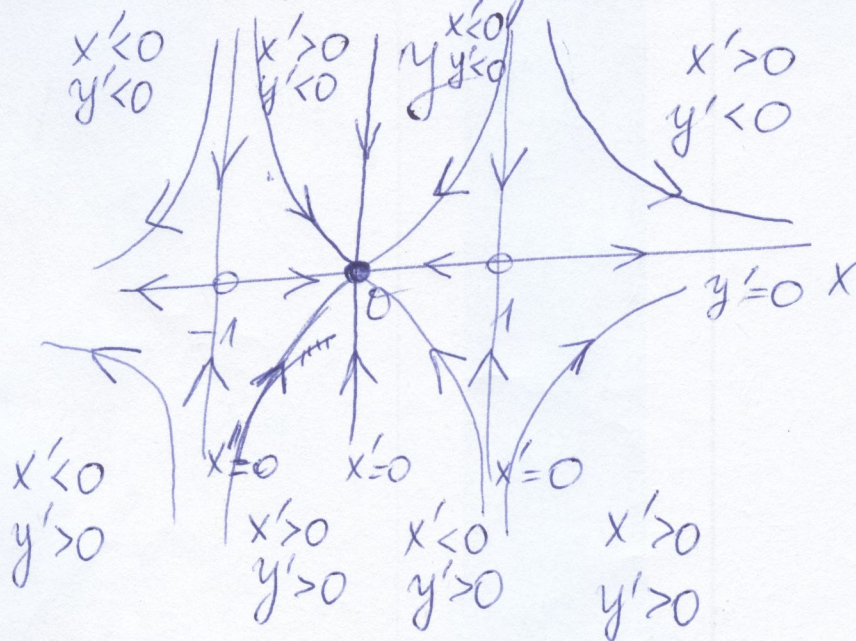 x'<0
y'<0
x'>0
y'<0
y
x'<0
y'<0
x'>0
y'<0
-1
0
1
y'=0
x
x'=0
x'=0
x'=0
x'<0
y'>0
x'>0
y'>0
x'<0
y'>0
x'>0
y'>0